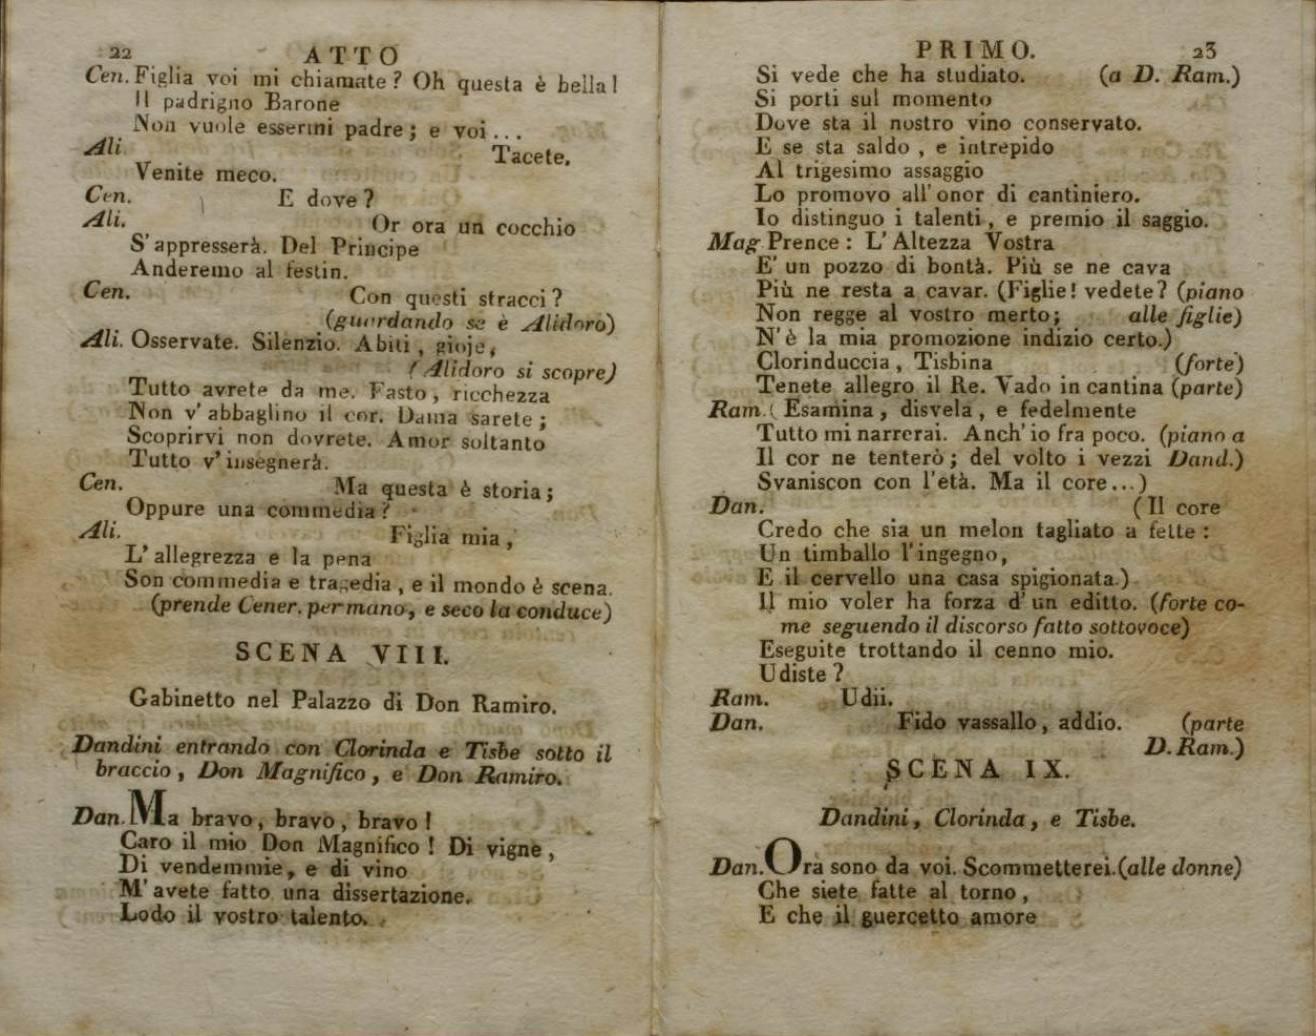 22 ATTO
Cen. Figlia voi mi chiamate? Oh questa è bella!
Il padrigno Barone
Non vuole essermi padre; e voi...
Ali Tacete.
Venite meco.
Cen. E dove?
Ali. Or ora un cocchio
S'appresserà. Del Principe
Anderemo al festin.
Cen. Con questi stracci?
(guardando se è Alidoro)
Ali. Osservate. Silenzio. Abiti, gioje,
(Alidoro si scopre)
Tutto avrete da me. Fasto, ricchezza
Non v'abbaglino il cor. Dama sarete;
Scoprirvi non dovrete. Amor soltanto
Tutto v'insegnerà.
Cen. Ma questa è storia;
Oppure una commedia?
Ali. Figlia mia,
L'allegrezza e la pena
Son commedia e tragedia, e il mondo è scena.
(prende Cener. per mano, e seco la conduce)
SCENA VIII.
Gabinetto nel Palazzo di Don Ramiro.
Dandini entrando con Clorinda e Tisbe sotto il
braccio, Don Magnifico, e Don Ramiro.
Dan. Ma bravo, bravo, bravo!
Caro il mio Don Magnifico! Di vigne,
Di vendemmie, e di vino
M'avete fatto una dissertazione.
Lodo il vostro talento.
PRIMO. 23
Si vede che ha studiato. (a D. Ram.)
Si porti sul momento
Dove sta il nostro vino conservato.
E se sta saldo, e intrepido
Al trigesimo assaggio
Lo promovo all'onor di cantiniero.
Io distinguo i talenti, e premio il saggio.
Mag Prence: L'Altezza Vostra
E' un pozzo di bontà. Più se ne cava
Più ne resta a cavar. (Figlie! vedete? (piano
Non regge al vostro merto; alle figlie)
N'è la mia promozione indizio certo.)
Clorinduccia, Tisbina (forte)
Tenete allegro il Re. Vado in cantina (parte)
Ram. (Esamina, disvela, e fedelmente
Tutto mi narrerai. Anch'io fra poco. (piano a
Il cor ne tenterò; del volto i vezzi Dand.)
Svaniscon con l'età. Ma il core...)
Dan. (Il core
Credo che sia un melon tagliato a fette:
Un timballo l'ingegno,
E il cervello una casa spigionata.)
Il mio voler ha forza d'un editto. (forte co-
me seguendo il discorso fatto sottovoce)
Eseguite trottando il cenno mio.
Udiste?
Ram. Udii.
Dan. Fido vassallo, addio. (parte
D. Ram.)
SCENA IX.
Dandini, Clorinda, e Tisbe.
Dan. Ora sono da voi. Scommetterei. (alle donne)
Che siete fatte al torno,
E che il guercetto amore